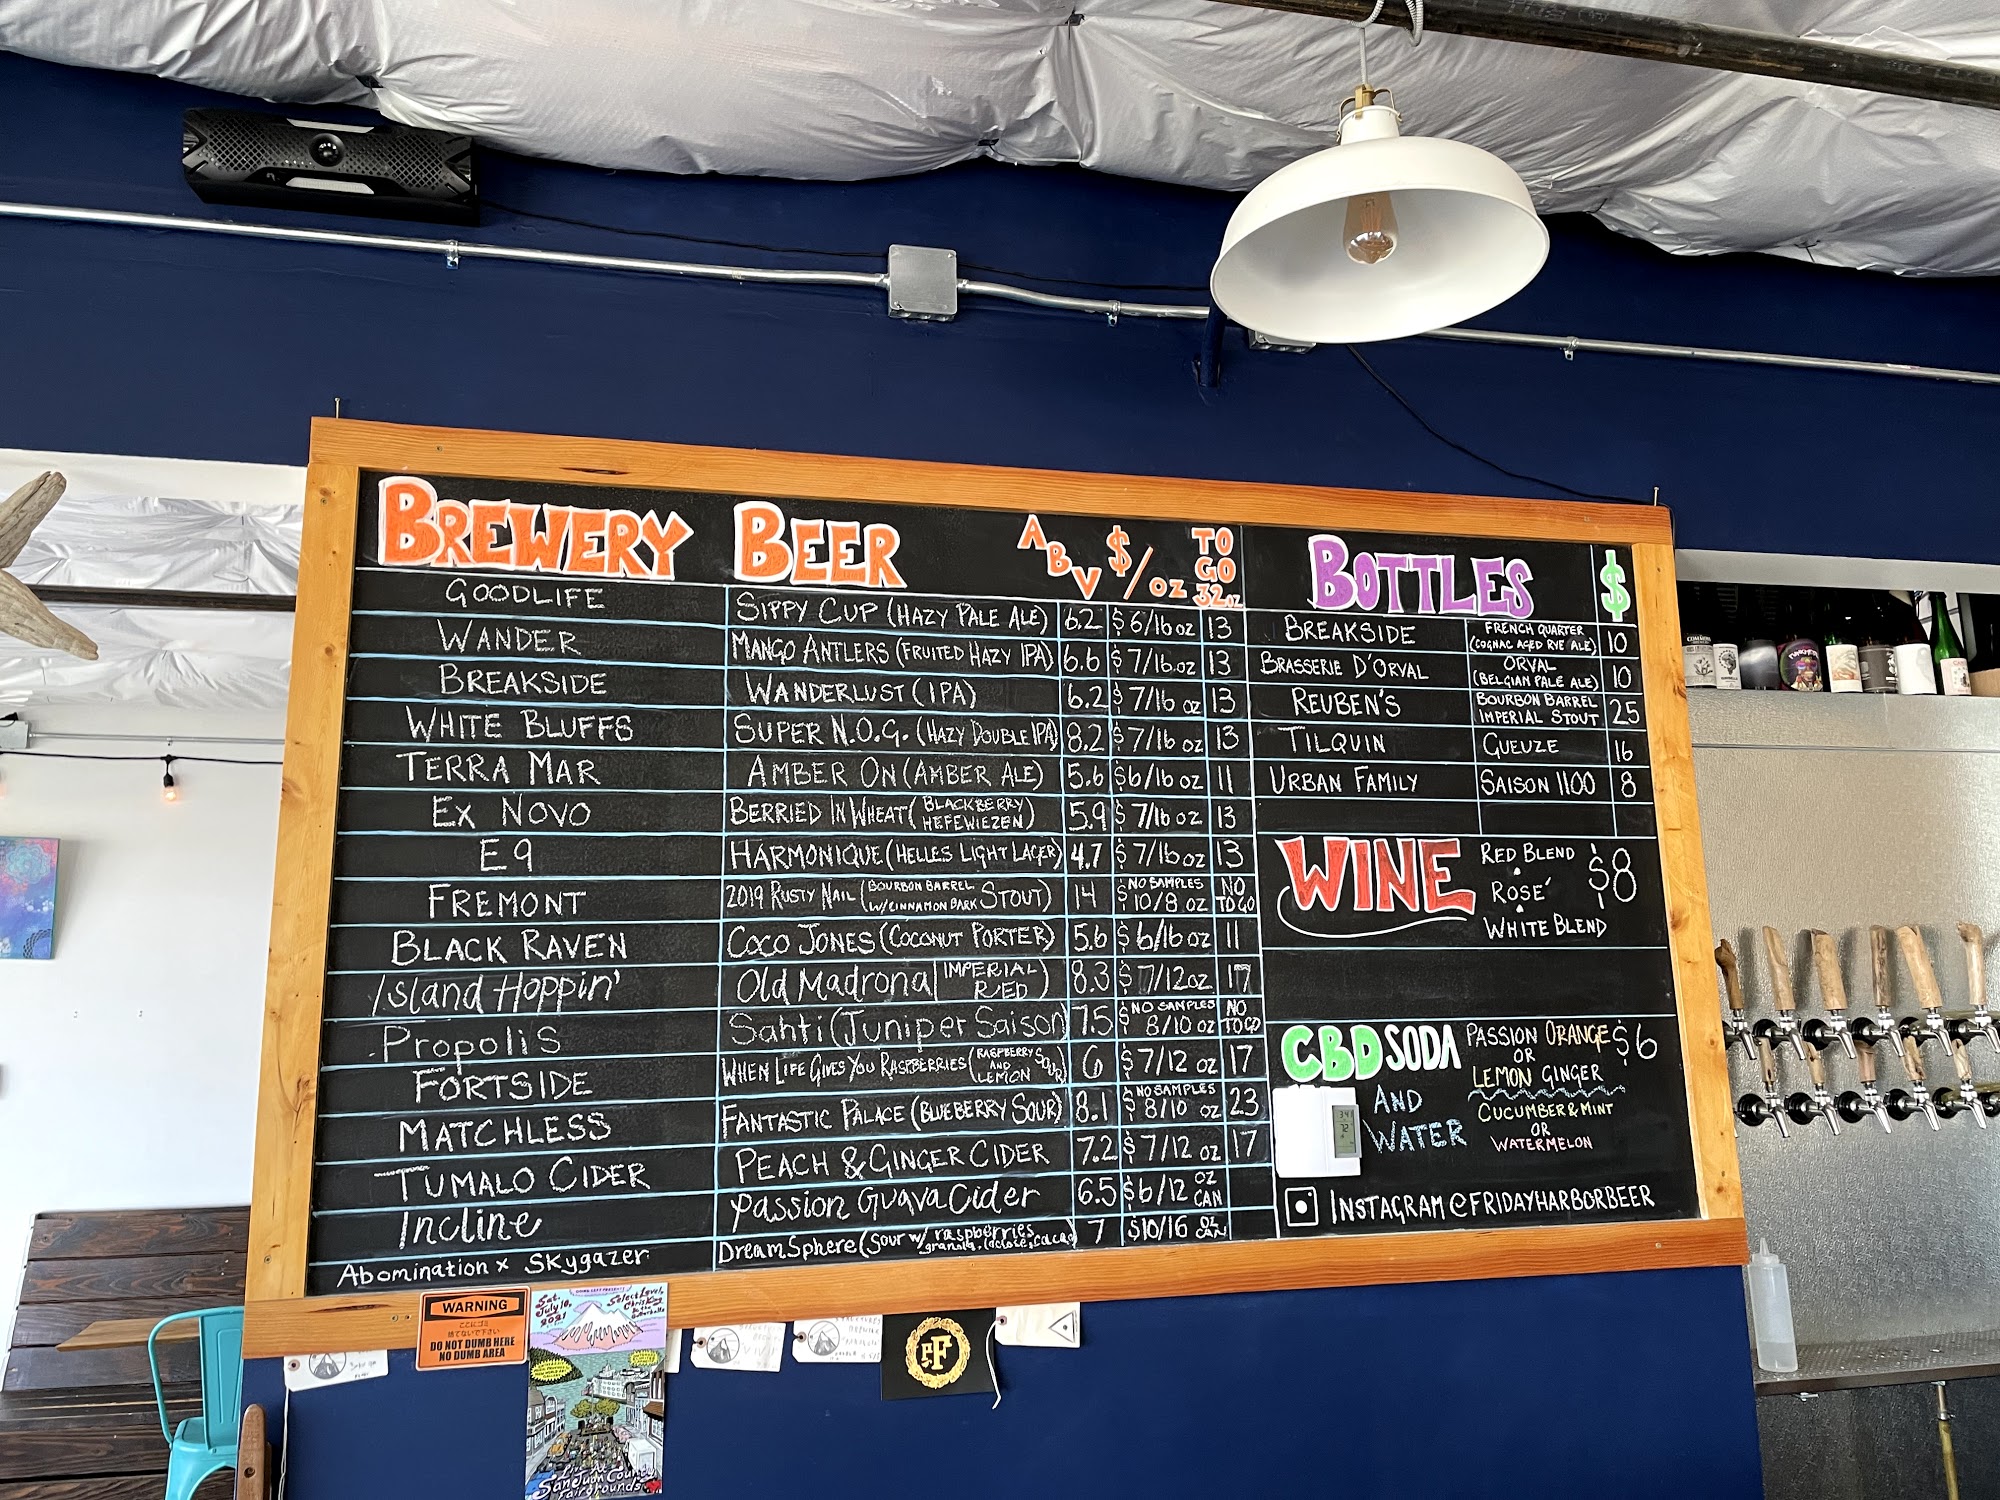 BREWERY BEER ABV $/OZ TO GO 32OZ
GOODLIFE SIPPY CUP (HAZY PALE ALE) 6.2 $6/16oz 13
WANDER MANGO ANTLERS (FRUITED HAZY IPA) 6.6 $7/16.oz 13
BREAKSIDE WANDERLUST (IPA) 6.2 $7/16 oz 13
WHITE BLUFFS SUPER N.O.G. (HAZY DOUBLE IPA) 8.2 $7/16 oz 13
TERRA MAR AMBER ON (AMBER ALE) 5.6 $6/16 oz 11
EX NOVO BERRIED IN WHEAT (BLACKBERRY HEFEWIEZEN) 5.9 $7/16 oz 13
E9 HARMONIQUE (HELLES LIGHT LAGER) 4.7 $7/16 oz 13
FREMONT 2019 RUSTY NAIL (BOURBON BARREL W/CINNAMON BARK STOUT) 14 NO SAMPLES $10/8 oz NO TO GO
BLACK RAVEN COCO JONES (COCONUT PORTER) 5.6 $6/16 oz 11
Island Hoppin' Old Madrona (IMPERIAL RED) 8.3 $7/12oz 17
Propolis Sahti (Juniper Saison) 7.5 NO SAMPLES $8/10 oz NO TO GO
FORTSIDE WHEN LIFE GIVES YOU RASPBERRIES (RASPBERRY AND LEMON SOUR) 6 $7/12 oz 17
MATCHLESS FANTASTIC PALACE (BLUEBERRY SOUR) 8.1 NO SAMPLES $8/10 oz 23
TUMALO CIDER PEACH & GINGER CIDER 7.2 $7/12 oz 17
Incline Passion Guava Cider 6.5 $6/12 OZ CAN
Abomination x Skygazer DreamSphere (Sour w/ raspberries, granola, lactose, cacao) 7 $10/16 oz CAN
BOTTLES $
BREAKSIDE FRENCH QUARTER (COGNAC AGED RYE ALE) 10
BRASSERIE D'ORVAL ORVAL (BELGIAN PALE ALE) 10
REUBEN'S BOURBON BARREL IMPERIAL STOUT 25
TILQUIN GUEUZE 16
URBAN FAMILY SAISON 1100 8
WINE RED BLEND $8
ROSÉ
WHITE BLEND
CBD SODA PASSION ORANGE $6
OR
LEMON GINGER
AND WATER CUCUMBER & MINT
OR
WATERMELON
INSTAGRAM @FRIDAYHARBORBEER
WARNING
ここにゴミ
捨てないで下さい
DO NOT DUMB HERE
NO DUMB AREA
Sat.
July 10,
2021
Select Level,
Chris King
Live At
San Juan County
Fairgrounds